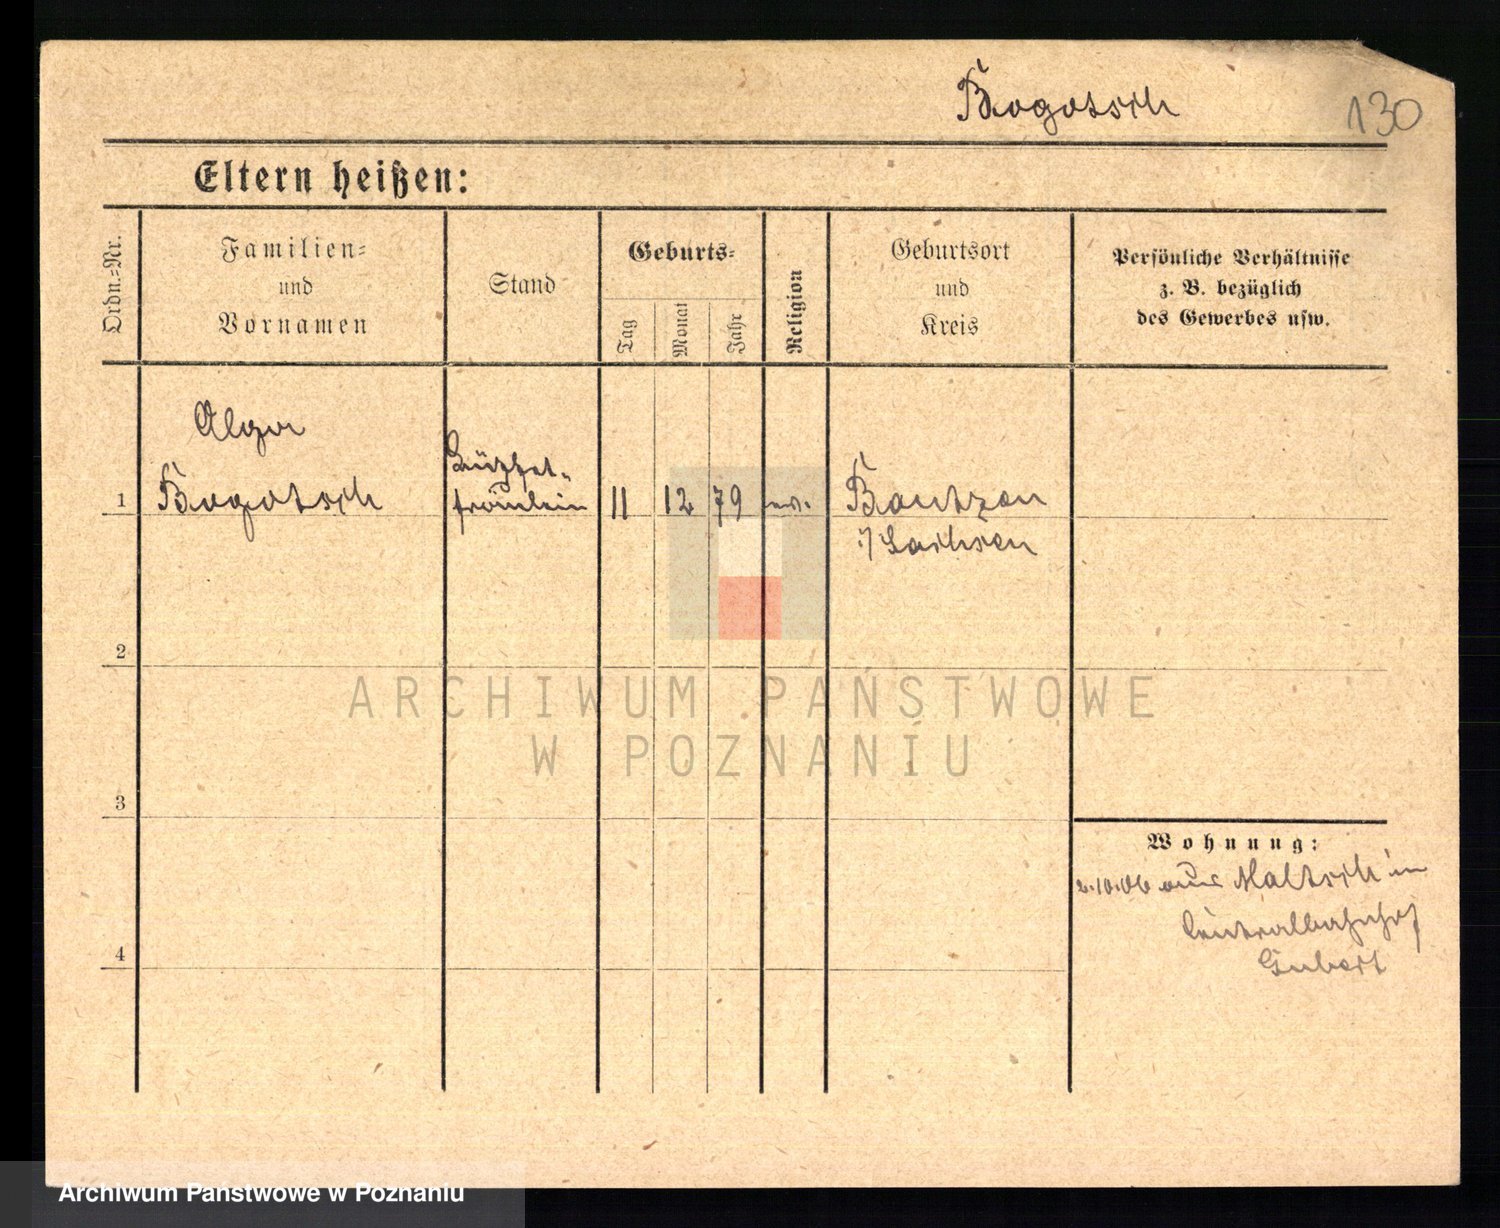 Bogotsch
130
Eltern heißen:
Ordn.=Nr.
Familien=
und
Vornamen
Stand
Geburts=
Tag
Monat
Jahr
Religion
Geburtsort
und
Kreis
Persönliche Verhältnisse
z. B. bezüglich
des Gewerbes usw.
Bogotsch
Büffet-
fräulein
1
11
12
79
ev.
Bautzen
i/Sachsen
2
ARCHIWUM PAŃSTWOWE
W POZNANIU
3
Wohnung:
2.10.06 aus Maltsch in
Centralbahnhof
4
Archiwum Państwowe w Poznaniu